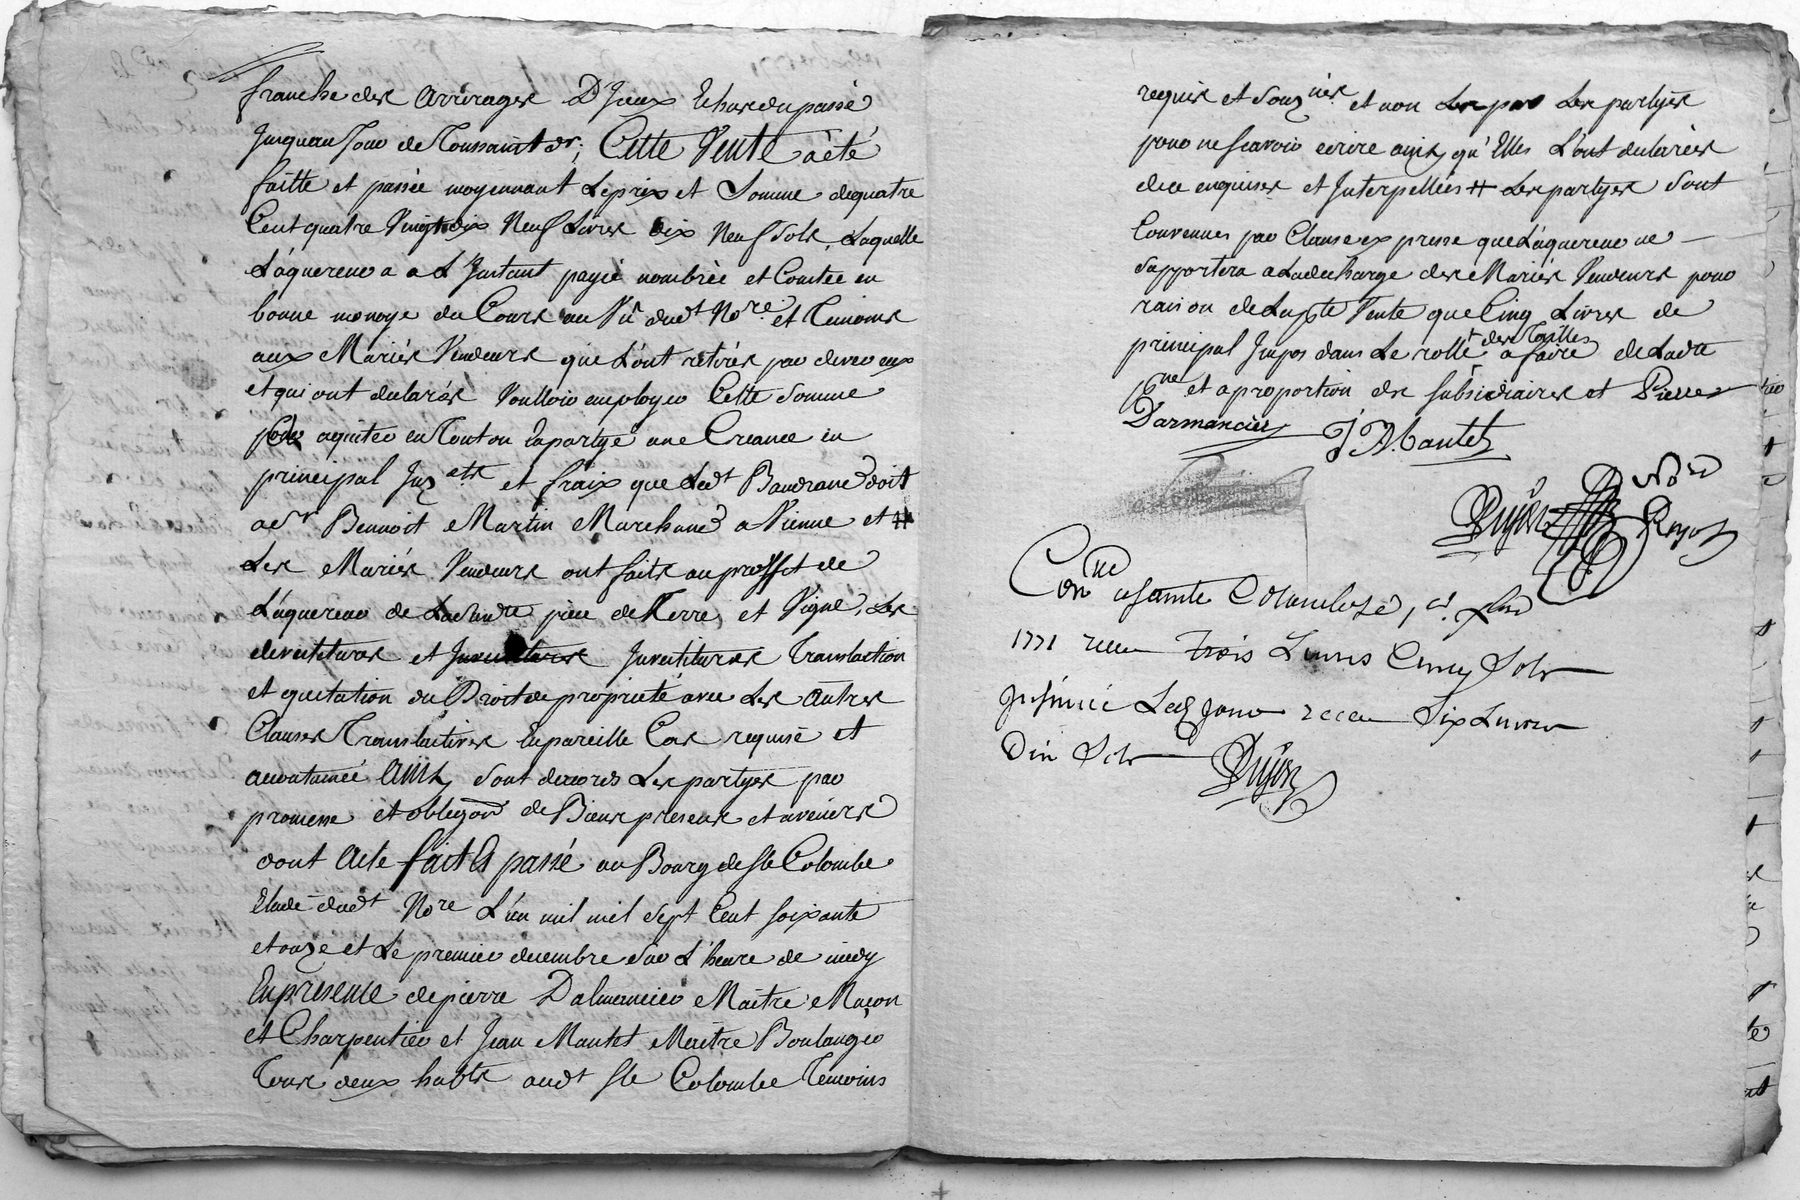 franche des arrerages D'Jceux Echus du passé
Jusqu'au Jour de Toussaint der; Cette Vente a été
faitte et passée moyennant Le prix et Somme de quatre
Cent quatre Vingt dix Neuf Livres dix Neuf Sols, Laquelle
L'aquereur a a L'Jnstant payé nombrée et Comtée en
bonne monoye du Cours au Vû dudt Nore et Temoins
aux Mariés Vendeurs que L'ont retirés par devers eux
et qui ont declarés Voulloir employer Cette Somme
pour aquiter en Tout ou En partye une Creance en
principal et fraix que Ledt Baudrand doit
a Sr Bennoit Martin Marchand a Vienne et #
Les Mariés Vendeurs ont faits au proffit de
L'aquereur de piece de Terre, et Vigne, Les
devestitures et Jnvestitures Jnvestitures Translaction
et quitation du Droit de proprieté avec Les autres
Clauses Translactives En pareille Cas requise et
acoutumée Ainsy Sont d'accords Les partyes par
promesse et obligaon de Biens presens et avenirs
dont Acte fait & passé au Bourg de Ste Colombe
Etude dudt Nore L'an mil mil Sept Cent Soixante
et onze et Le premier decembre Sur L'heure de midy
En presence de pierre Dalmencier Maitre Maçon
et Charpentier et Jean Mantet Maitre Boulanger
Tous deux habts audt Ste Colombe Temoins
requis et Souznés et non Les par Les partyes
pour ne Scavoir ecrire ainsy qu'Elles L'ont declarées
de ce enquises et Jnterpellées # Les partyes Sont
Convennues par Clause expresse que L'aquereur ne
Supportera a La decharge des Mariés Vendeurs pour
raison de Lapte Vente que Cinq Livres de
principal Jmpos dans Le rolle des Tailles a faire de Ladte
pne et a proportion des Subsidiaires et Pierre
Darmancier J Mantet
Dujon
Con ne a Sainte Colombe Le, 1771 receu Trois Livres Cinq Sols
receu Six Livres
Dix Sols
Dujon